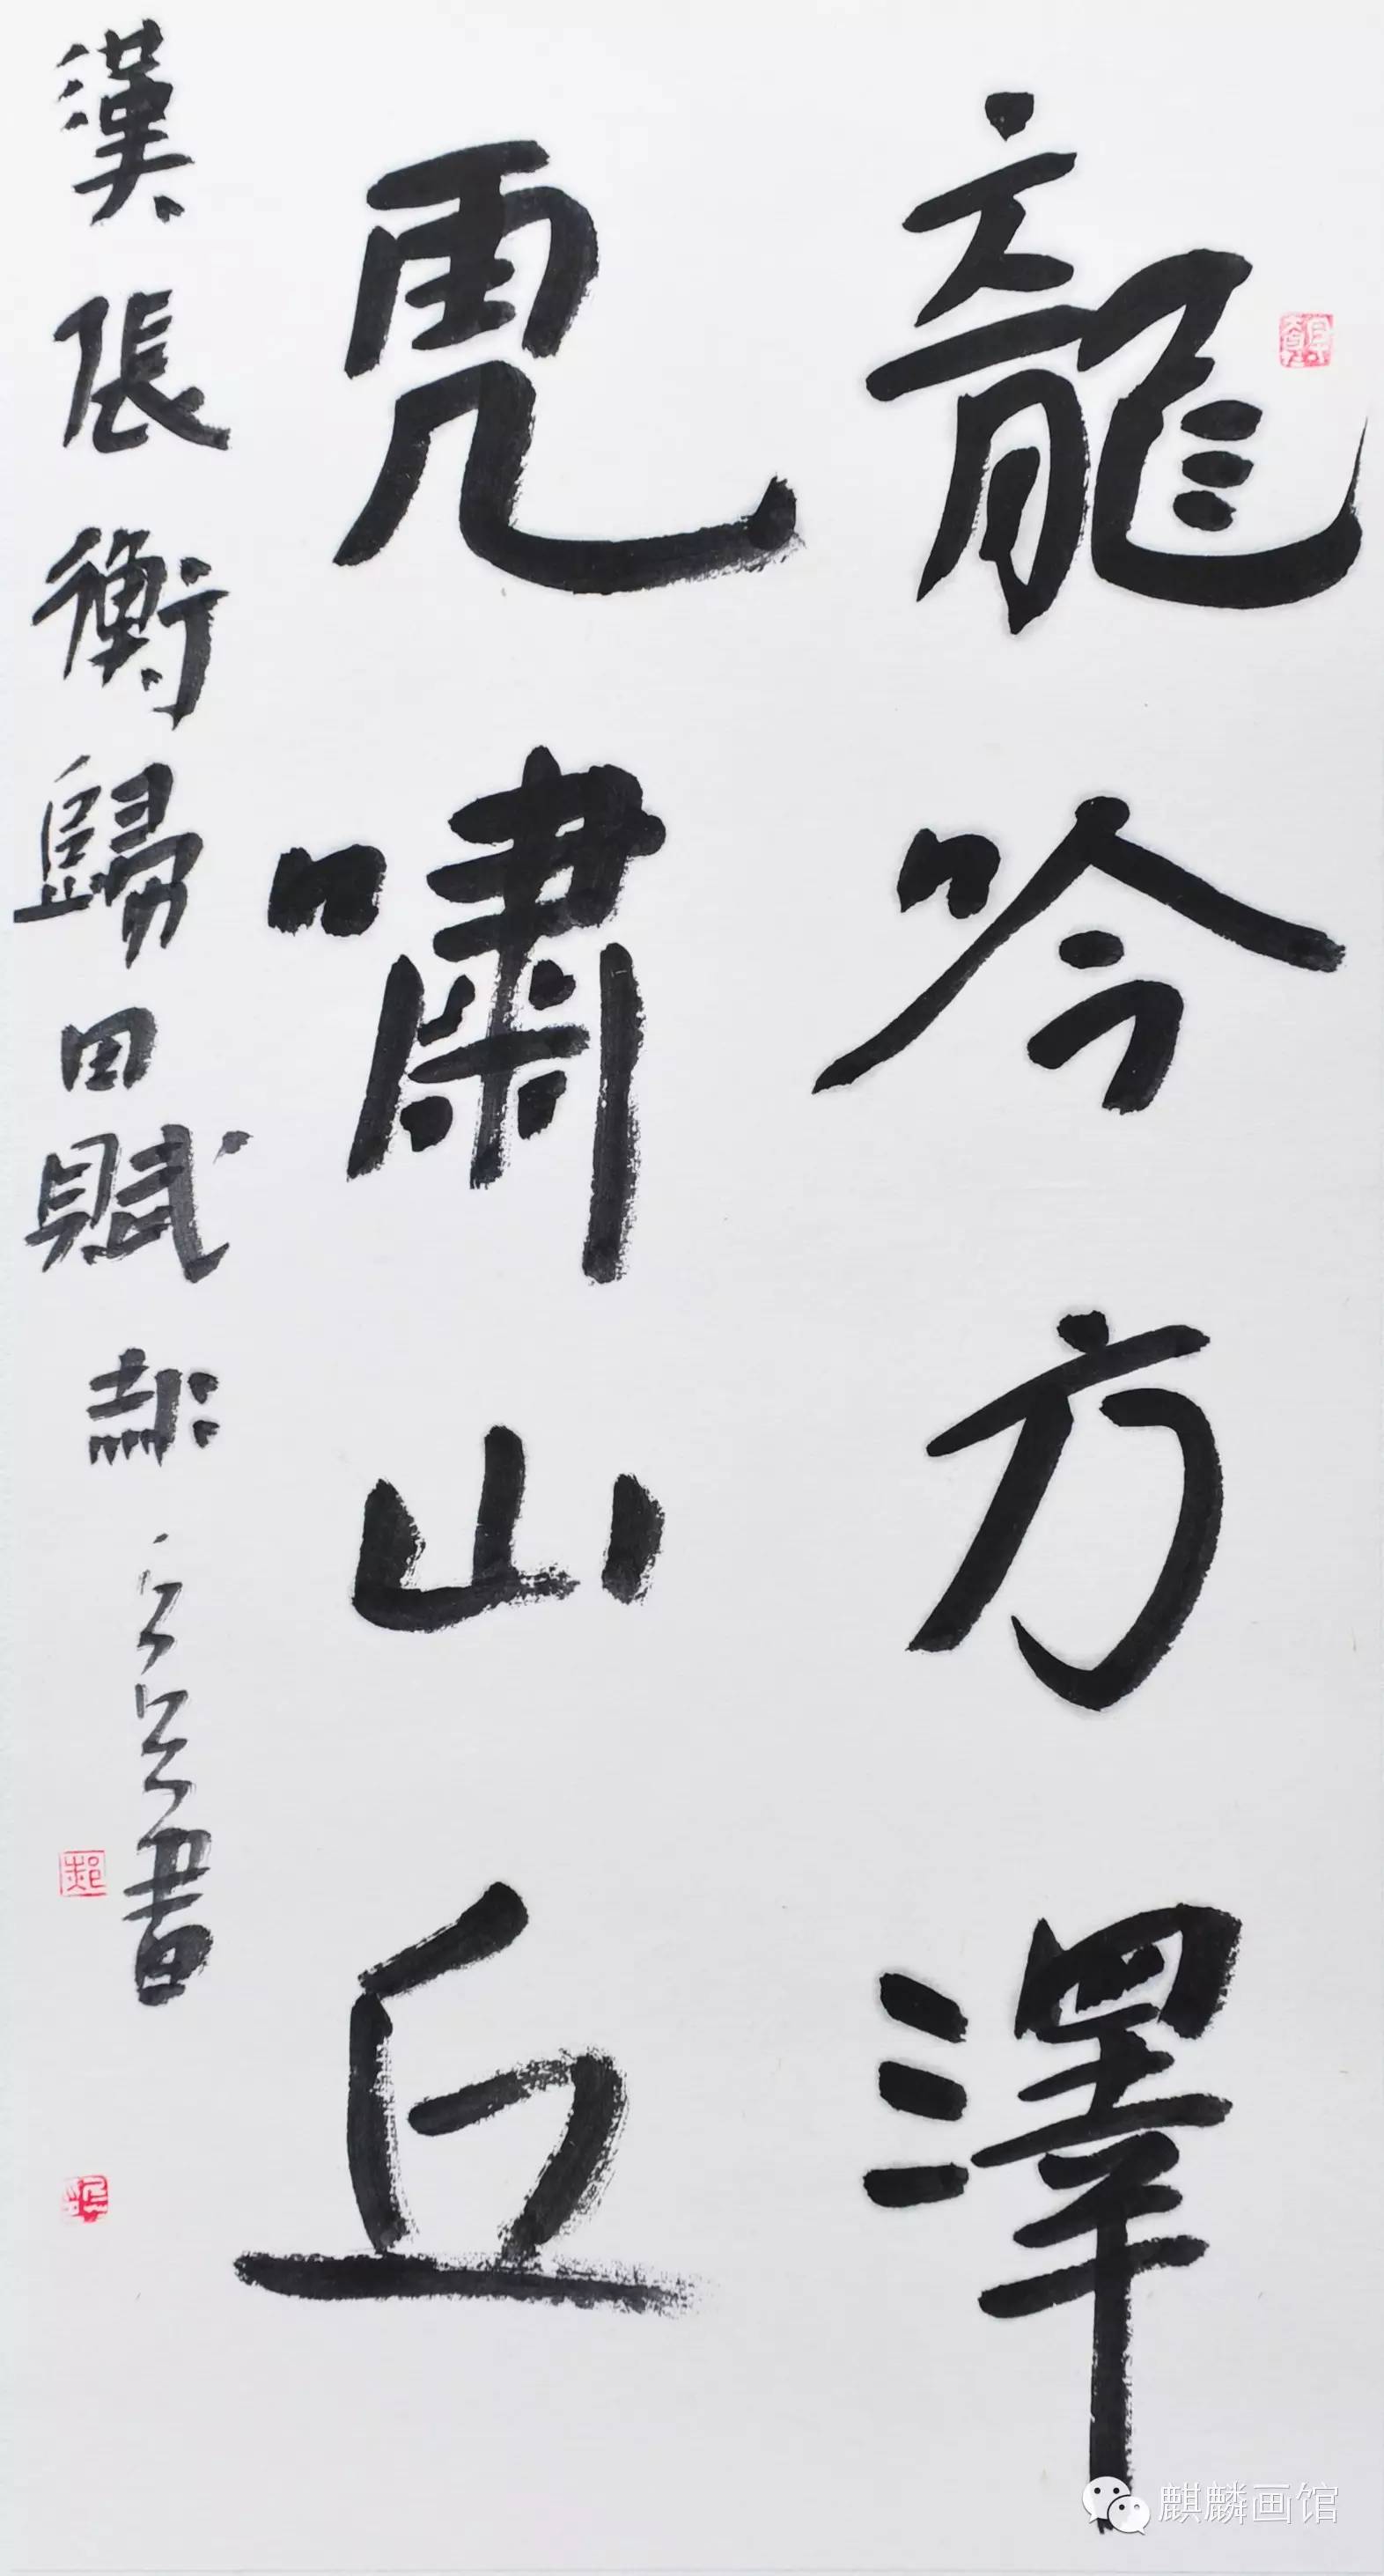 龍吟方澤
虎嘯山丘
漢張衡歸田賦 書
麒麟画馆